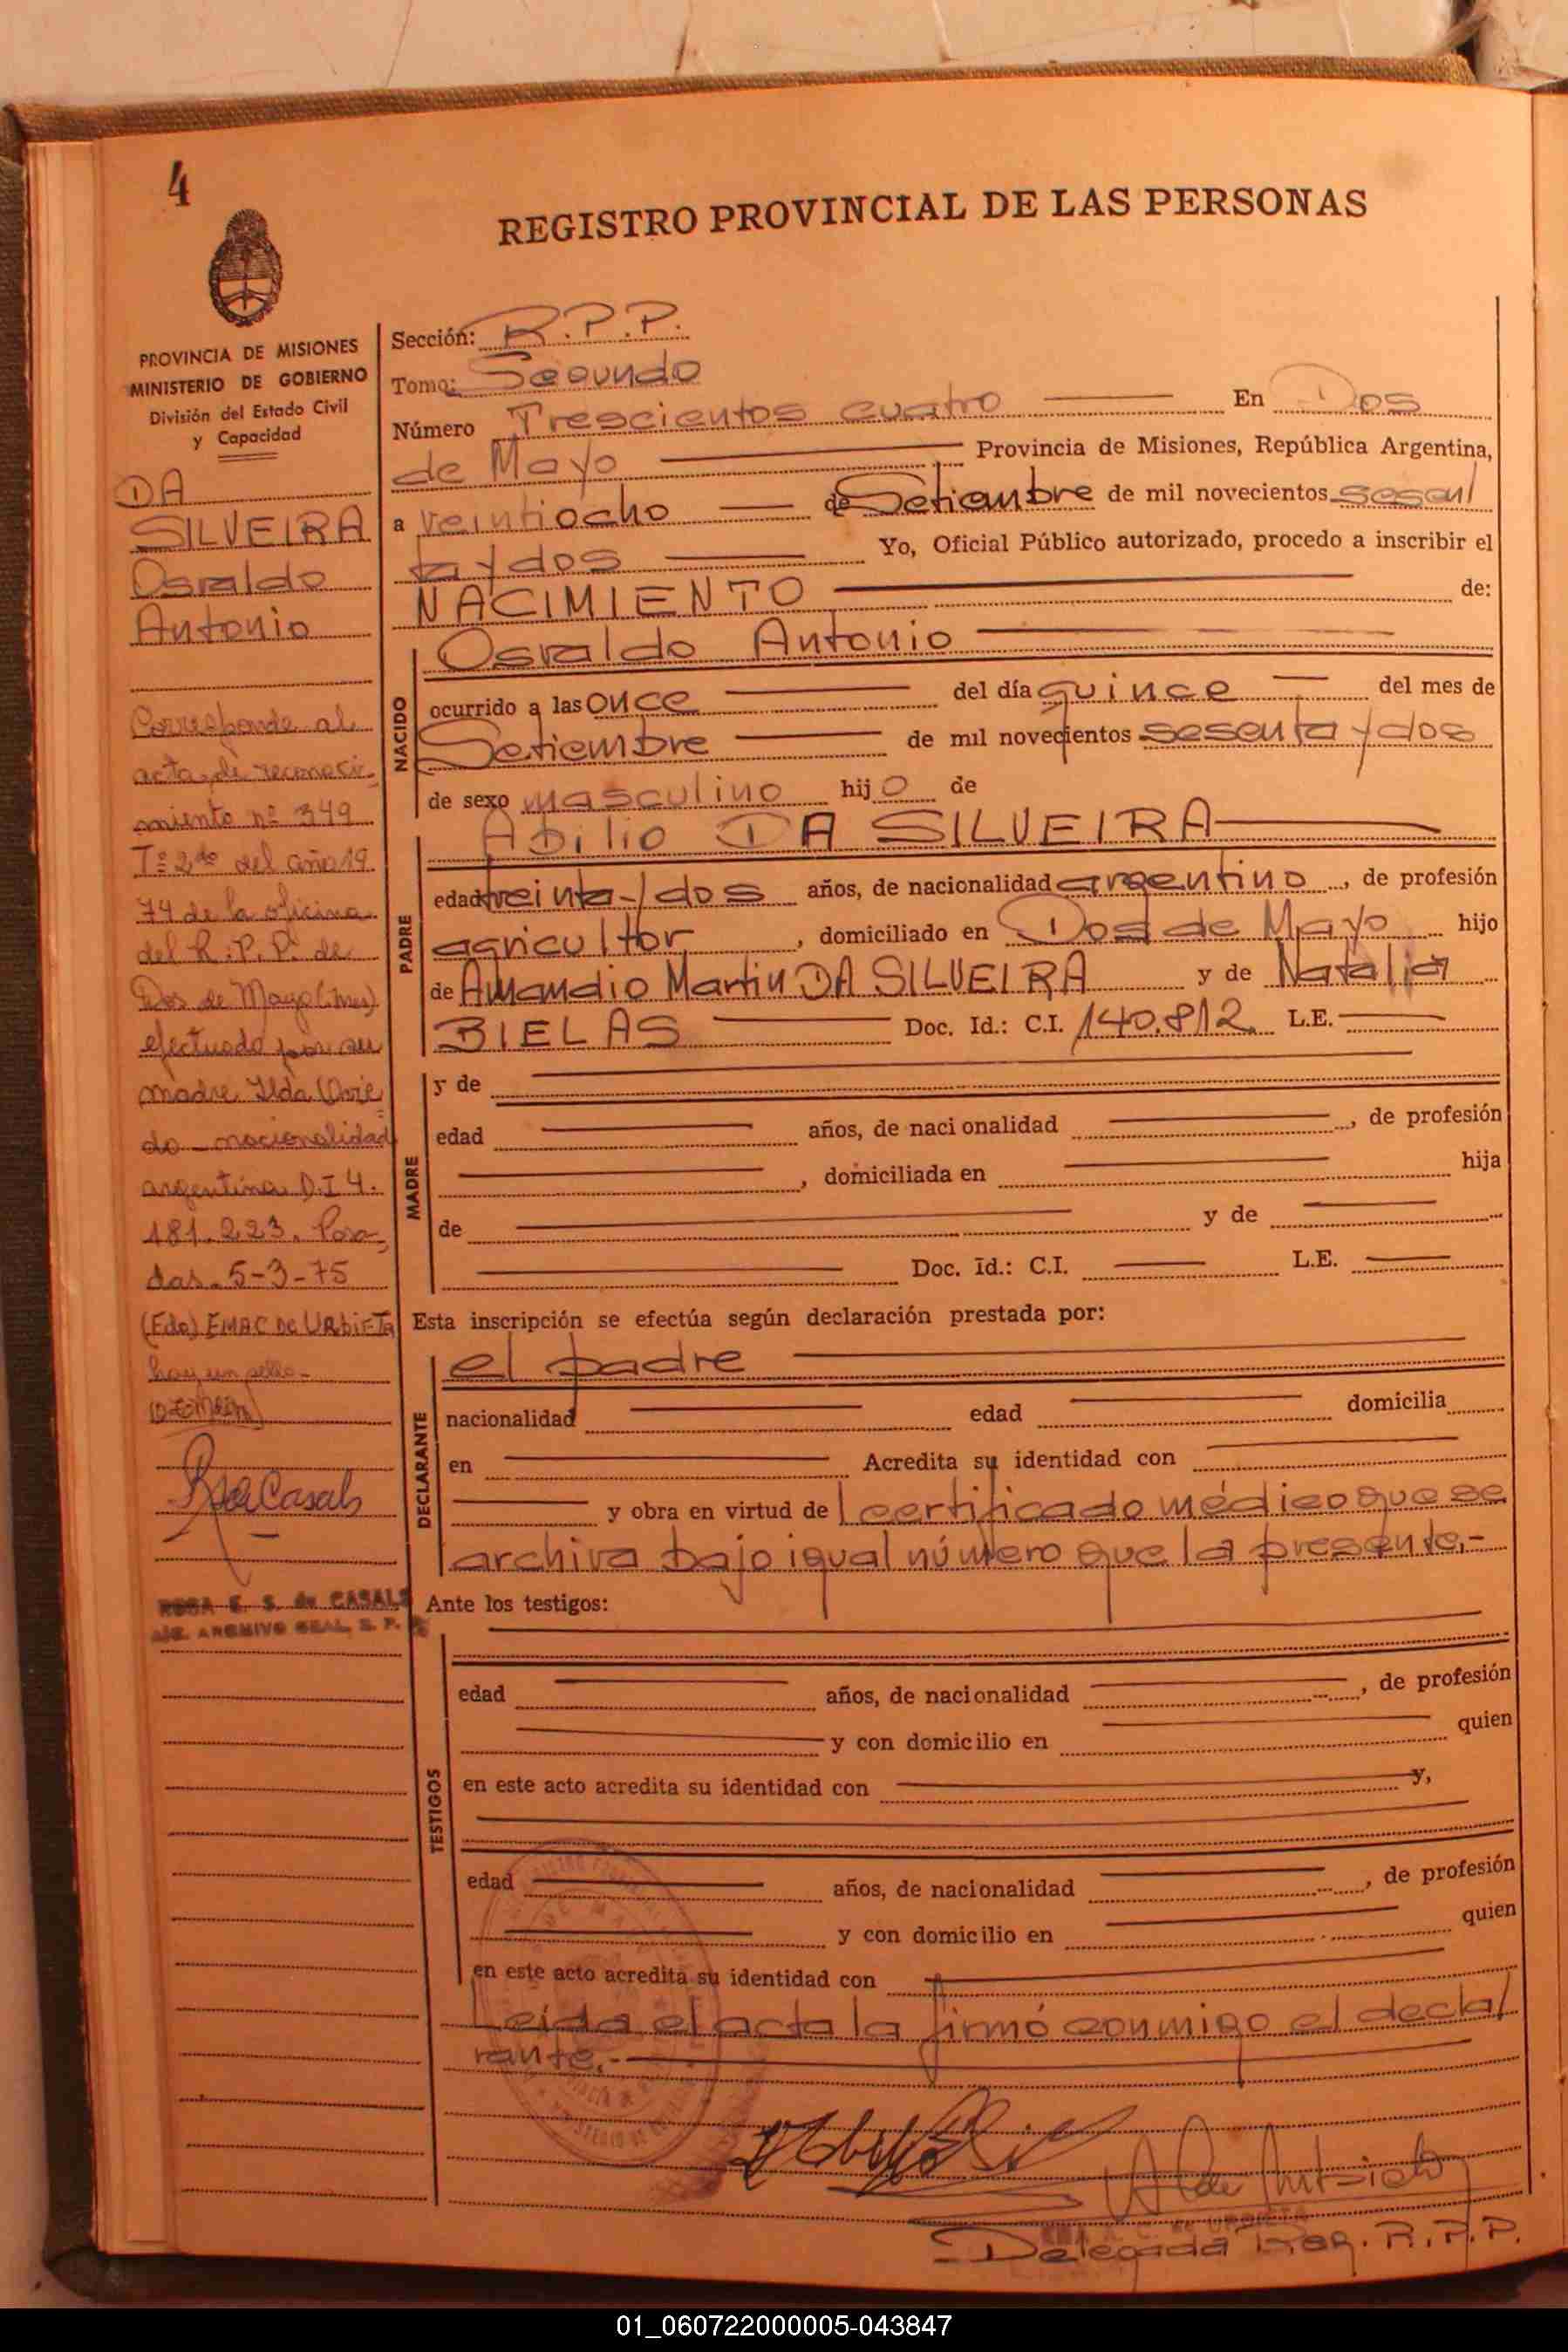 4
REGISTRO PROVINCIAL DE LAS PERSONAS
PROVINCIA DE MISIONES
MINISTERIO DE GOBIERNO
División del Estado Civil
y Capacidad
DA
SILVEIRA
Osvaldo
Antonio
Corresponde al
acta de reconoci-
miento nº 349
Tº 2do del año 19
74 de la oficina
del R.P.P. de
Dos de Mayo (Mnes)
efectuado por su
madre Ilda Ovie
do nacionalidad
argentina D.I 4.
181.223. Posa-
das. 5-3-75
(Fdo) EMAC DE URBIETA
hay un sello-
R de Casals
ROSA E. S. de CASALS
ARCHIVO GRAL. R. P.
Sección: R.P.P.
Tomo: Segundo
Número Trescientos cuatro En Dos
de Mayo Provincia de Misiones, República Argentina,
a veintiocho de Setiembre de mil novecientos sesen/
ta y dos Yo, Oficial Público autorizado, procedo a inscribir el
NACIMIENTO de:
NACIDO
Osvaldo Antonio
ocurrido a las once del día quince del mes de
Setiembre de mil novecientos sesenta y dos
de sexo masculino hijo de
PADRE
Abilio DA SILVEIRA
edad treinta y dos años, de nacionalidad argentino, de profesión
agricultor, domiciliado en Dos de Mayo hijo
de Amandio Martin DA SILVEIRA y de Natalia
BIELAS Doc. Id.: C.I. 140.812 L.E.
MADRE
y de
edad años, de nacionalidad , de profesión
, domiciliada en hija
de y de
Doc. Id.: C.I. L.E.
Esta inscripción se efectúa según declaración prestada por:
DECLARANTE
el padre
nacionalidad edad domicilia
en Acredita su identidad con
y obra en virtud de l certificado médico que se
archiva bajo igual número que la presente.-
Ante los testigos:
TESTIGOS
edad años, de nacionalidad , de profesión
y con domicilio en quien
en este acto acredita su identidad con y,
edad años, de nacionalidad , de profesión
y con domicilio en quien
en este acto acredita su identidad con
Leída el acta la firmó conmigo el decla/
rante.-
de URBIETA
Delegada Reg. R.P.P.
01_060722000005-043847